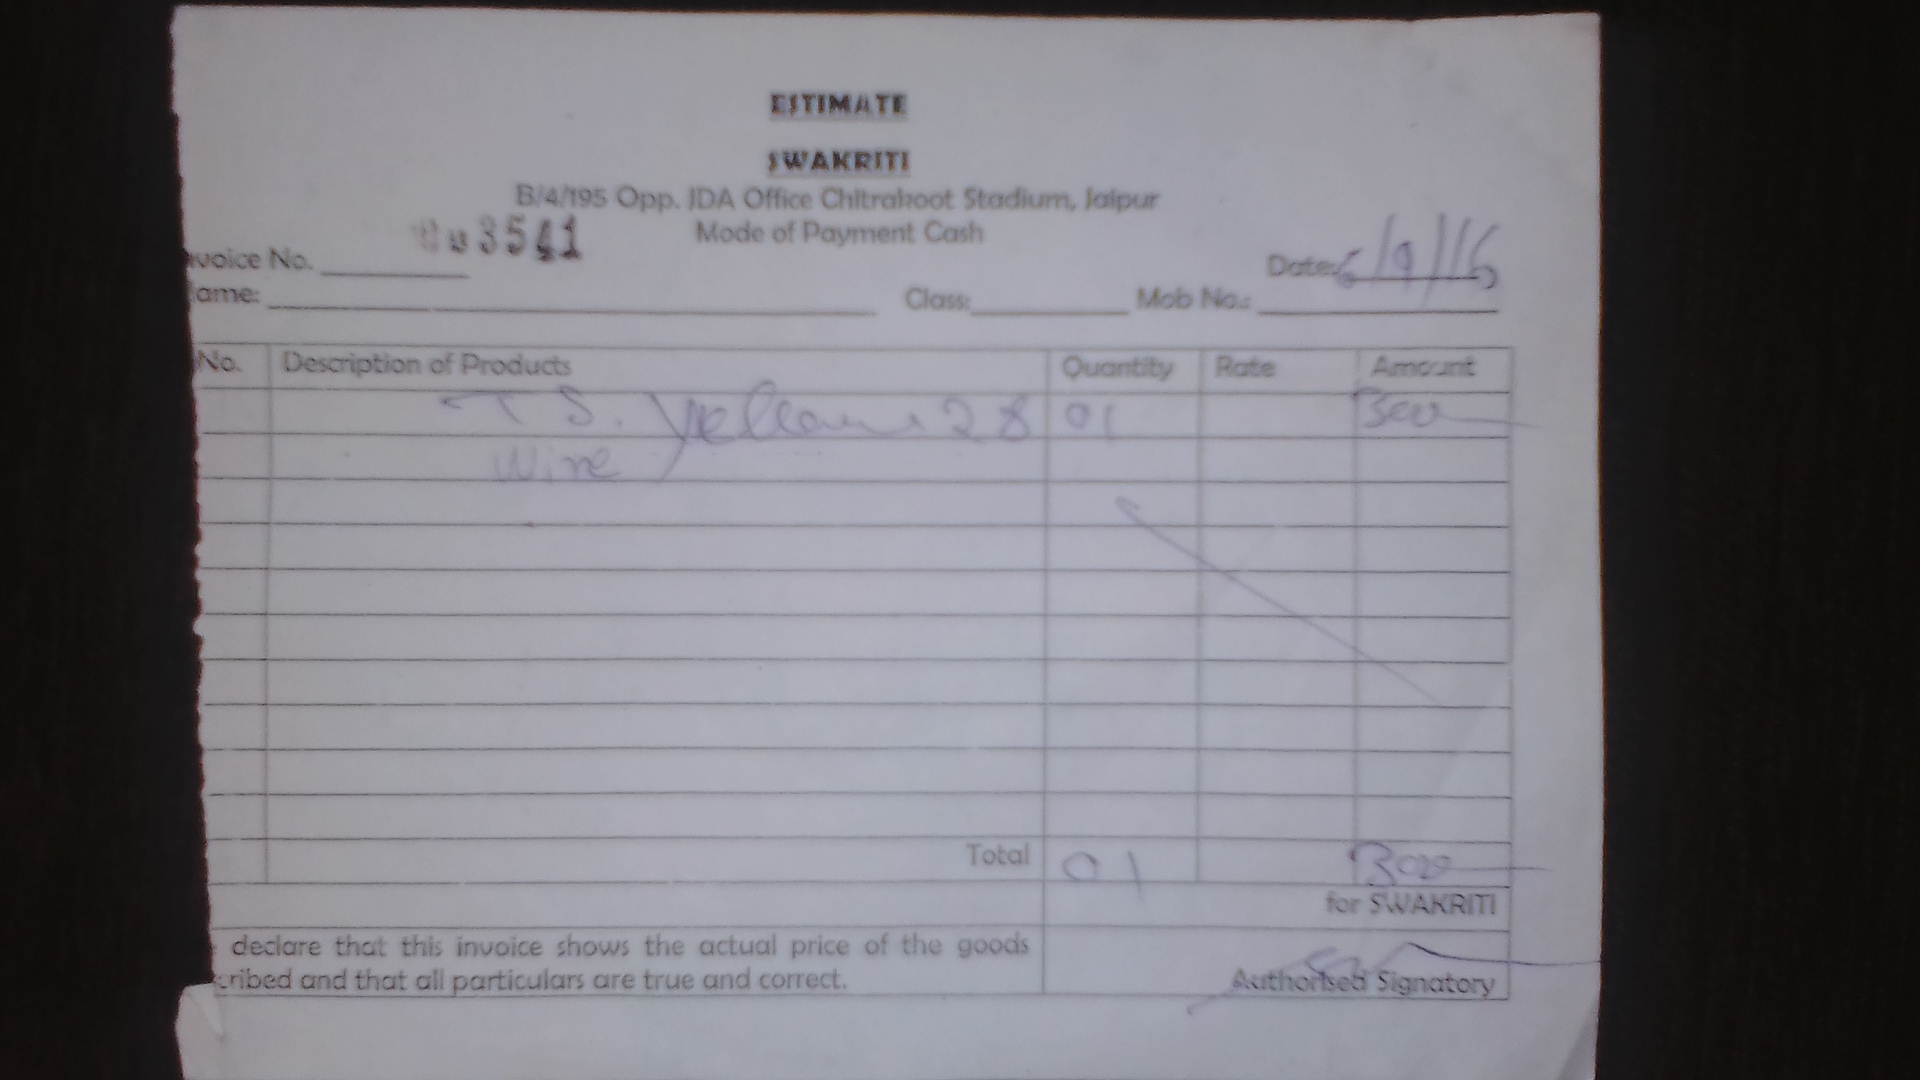 ESTIMATE
SWAKRITI
B/4/195 Opp. JDA Office Chitrakoot Stadium, Jaipur
3541 Mode of Payment Cash
voice No. Date: 6/9/16
ame: Class: Mob No.:
No. Description of Products Quantity Rate Amount
T S. Yellow 28 01 300
Wine
Total 01 300
for SWAKRITI
declare that this invoice shows the actual price of the goods
cribed and that all particulars are true and correct.
Authorised Signatory